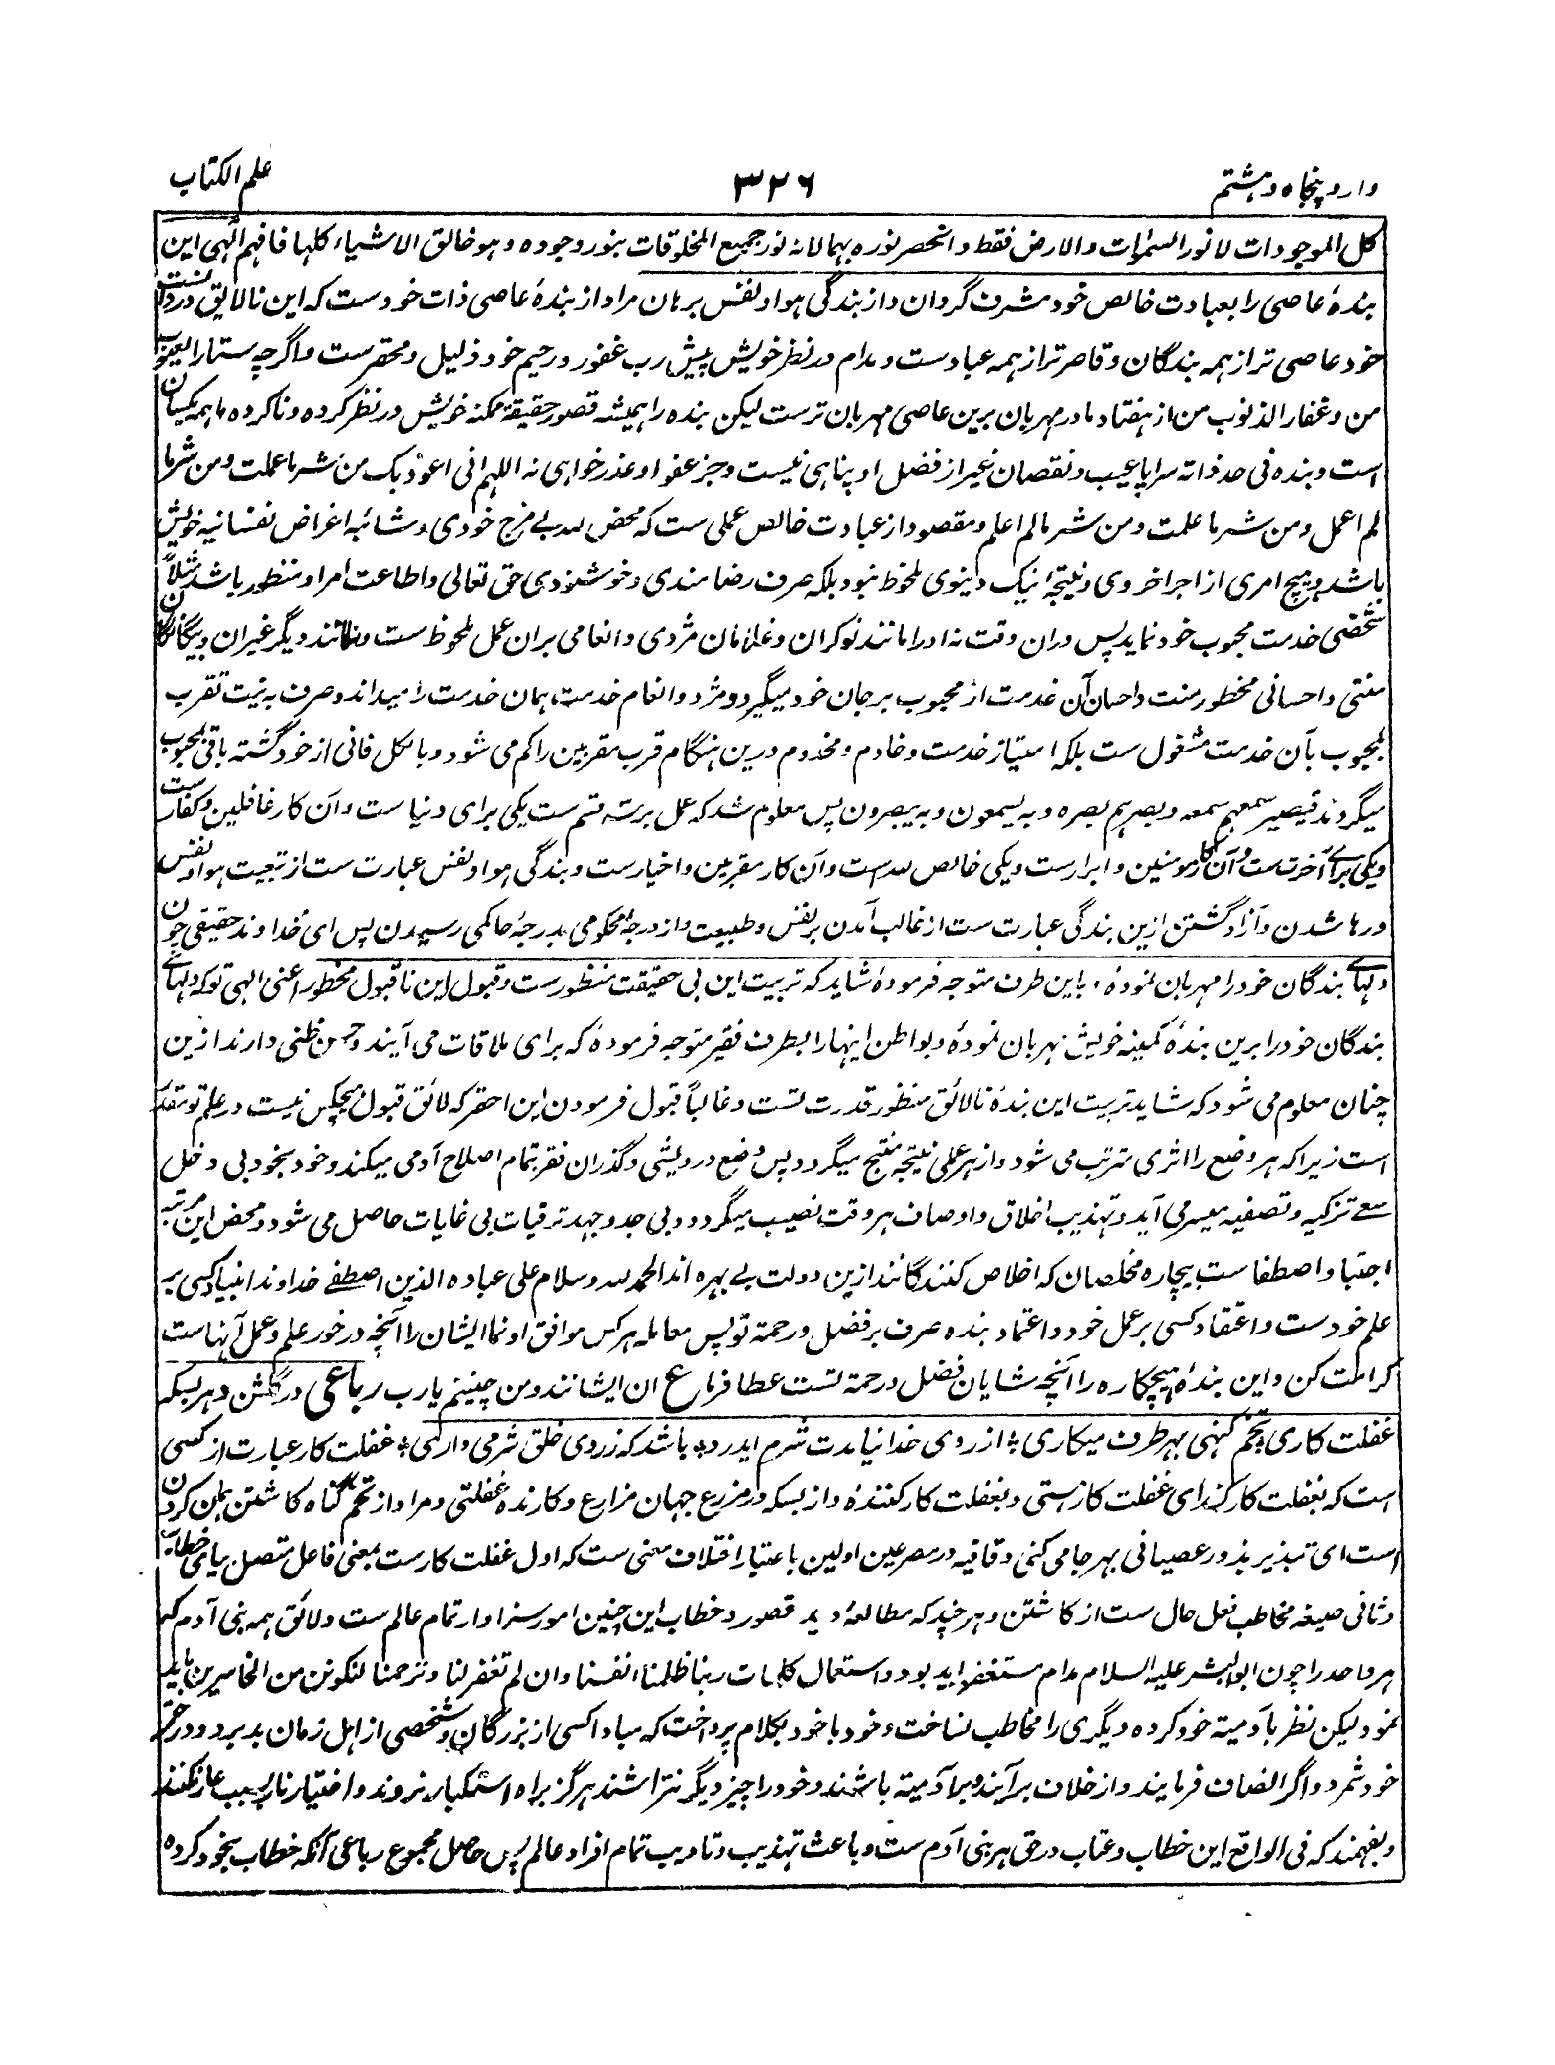 وارد پنجاه و هشتم
۳۲۶
علم الکتاب
کل الموجودات لا نور السموات والارض فقط و انحصر نوره بهما لانه نور جمیع المخلوقات بنور وجوده و هو خالق الاشیاء کلها فافهم الهی این
بندهٔ عاصی را بعبادت خالص خود مشرف گردان و از بندگی هوا و نفس برهان مراد از بندهٔ عاصی ذات خودست که این نالایق در دانست
خود عاصی تر از همه بندگان و قاصر تر از همه عبادست و مدام در نظر خویش پیش رب غفور و رحیم خود ذلیل و محقرست و اگرچه ستار العیوب
من و غفار الذنوب من از هفتاد مادر مهربان برین عاصی مهربان ترست لیکن بنده را همیشه قصور حقیقة ممکنه خویش در نظر کرده و ناکرده ما همه یکسان
است و بنده فی حد ذاته سراپا عیب و نقصان غیر از فضل او پناهی نیست و جز عفو او عذر خواهی نه اللهم انی اعوذ بک من شر ما عملت و من شر ما
لم اعمل و من شر ما علمت و من شر مالم اعلم و مقصود از عبادت خالص عملی ست که محض لله بی مزج خودی و شائبه اغراض نفسانیه خویش
باشد و هیچ امری از اجر اخروی و نتیجه نیک دنیوی ملحوظ نبود بلکه صرف رضامندی و خوشنودی حق تعالی و اطاعت امر او منظور باشد مثلاً
شخصی خدمت محبوب خود نماید پس دران وقت نه او را مانند نوکران و غلامان مژدی و انعامی بران عمل ملحوظ ست و نه مانند دیگر غیران و بیگانگان
منتی و احسانی محظور منت و احسان آن خدمت از محبوب بر جان خود میگیرد و مژد و انعام خدمت همان خدمت را میداند و صرف به نیت تقرب
بمحبوب بآن خدمت مشغول ست بلکه امتیاز خدمت و خادم و مخدوم درین هنگام قرب مقربین را کم می شود و بالکل فانی از خود گشته باقی بمحبوب
میگردند فیصیر سمعهم سمعه و بصرهم بصره و به یسمعون و به یبصرون پس معلوم شد که عمل بر سه قسم ست یکی برای دنیاست و آن کار غافلین و کفار ست
و یکی برای آخرت ست و آن کار مومنین و ابرارست و یکی خالص لله ست و آن کار مقربین و اخیارست و بندگی هوا و نفس عبارت ست از تبعیت هوا و نفس
و رها شدن و آزاد گشتن ازین بندگی عبارت ست از غالب آمدن بر نفس و طبیعت و از درجهٔ محکومی بدرجهٔ حاکمی رسیدن پس ای خداوند حقیقی چون
دلهای بندگان خود را مهربان نمودهٔ و باین طرف متوجه فرمودهٔ شاید که تربیت این بی حقیقت منظورست و قبول این ناقبول محظور اعنی الهی تو که دلهای
بندگان خود را برین بندهٔ کمینه خویش مهربان نمودهٔ و بواطن اینها را بطرف فقیر متوجه فرمودهٔ که برای ملاقات می آیند و حسن ظنی دارند ازین
چنان معلوم می شود که شاید تربیت این بندهٔ نالائق منظور قدرت تست و غالباً قبول فرمودن این احقر که لائق قبول هیچکس نیست در علم تو مقدر
است زیرا که هر وضع را اثری مترتب می شود و از هر عملی نتیجه منتج میگردد پس وضع درویشی و گذران فقر تمام اصلاح آدمی میکند و خود بخود بی دخل
سعی تزکیه و تصفیه میسر می آید و تهذیب اخلاق و اوصاف هر وقت نصیب میگردد و بی جد و جهد ترقیات بی غایات حاصل می شود و محض این مرتبه
اجتبا و اصطفاست بیچاره مخلصان که اخلاص کنندگانند ازین دولت بی بهره اند الحمد لله و سلام علی عباده الذین اصطفی خداوندا بنیاد کسی بر
علم خودست و اعتقاد کسی بر عمل خود و اعتماد بنده صرف بر فضل و رحمة تو پس معامله هر کس موافق او نما ایشان را آنچه در خور علم و عمل آنهاست
کرامت کن و این بندهٔ هیچکاره را آنچه شایان فضل و رحمة تست عطا فرما ع ان ایشانند و من چنینم یارب رباعی در گلشن دهر بسکه
غفلت کاری ٭ تخم گنهی بهر طرف میکاری ٭ از روی خدا نیامدت شرم ایدرد ٭ باشد که ز روی خلق شرمی داری ٭ غفلت کار عبارت از کسی
است که بغفلت کار کند ای غفلت کارستی و بغفلت کار کنندهٔ و از بسکه در مزرع جهان مزارع و کارنده غفلتی و مراد از تخم گناه کاشتن بمن کردن
است ای تبذیر بذور عصیانی بهر جا می کنی و قافیه در مصرعین اولین باعتبار اختلاف معنی ست که اول غفلت کارست بمعنی فاعل متصل بیای خطاب
و ثانی صیغه مخاطب فعل حال ست از کاشتن و هر چند که مطالعهٔ دید قصور و خطاب این چنین امور سزاوار تمام عالم ست و لائق همه بنی آدم که
هر واحد را چون ابو البشر علیه السلام مدام مستغفر باید بود و استعمال کلمات ربنا ظلمنا انفسنا و ان لم تغفر لنا و ترحمنا لنکونن من الخاسرین باید
نمود لیکن نظر بآدمیته خود کرده دیگری را مخاطب نساخت و خود با خود بکلام پرداخت که مبادا کسی از بزرگان و شخصی از اهل زمان بد برد و در حق
خود شمرد و اگر انصاف فرمایند و از خلاف برآیند و بر آدمیته باشند و خود را چیز دیگر نتراشند هرگز براه استکبار نروند و اختیار نار بسبب عار نکنند
و بفهمند که فی الواقع این خطاب و عتاب در حق هر بنی آدم ست و باعث تهذیب و تادیب تمام افراد عالم پس حاصل مجموع رباعی آنکه خطاب بخود کرده